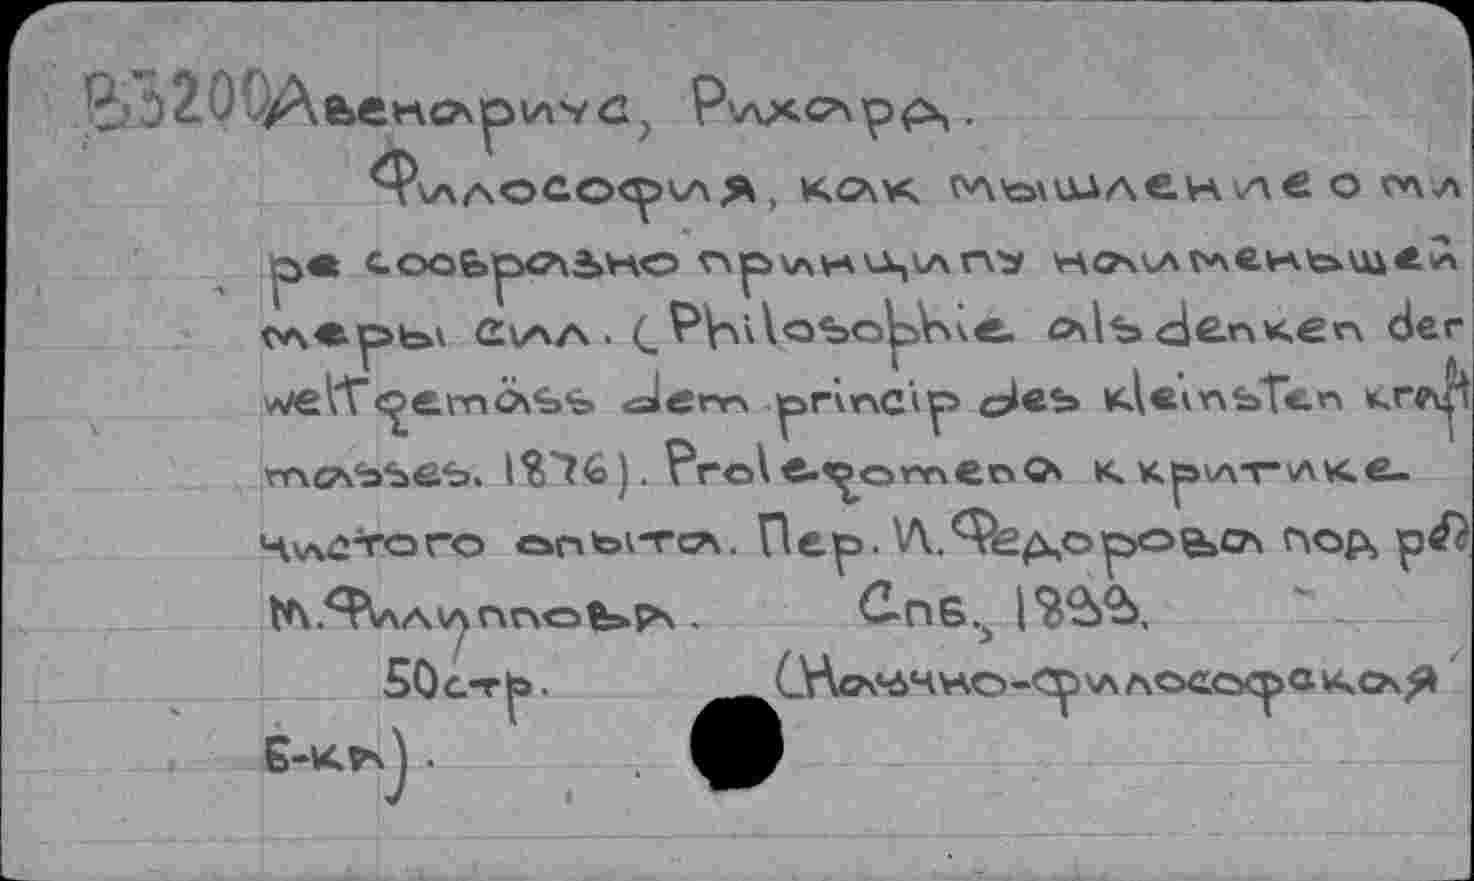 B3200 Авенариус, Рихард.
Философия, как мышление о ми
ре сообразно принципу наименьшей
меры сил. (Philosophie als denken der
welt gemäss dem princip des kleinsten kraft
masses. 1876). Prolegomena к критике
чистого опыта. Пер. И. Федорова под ре
М. Филиппова. Спб., 1899.
50 стр. (Научно-философская
б-ка).